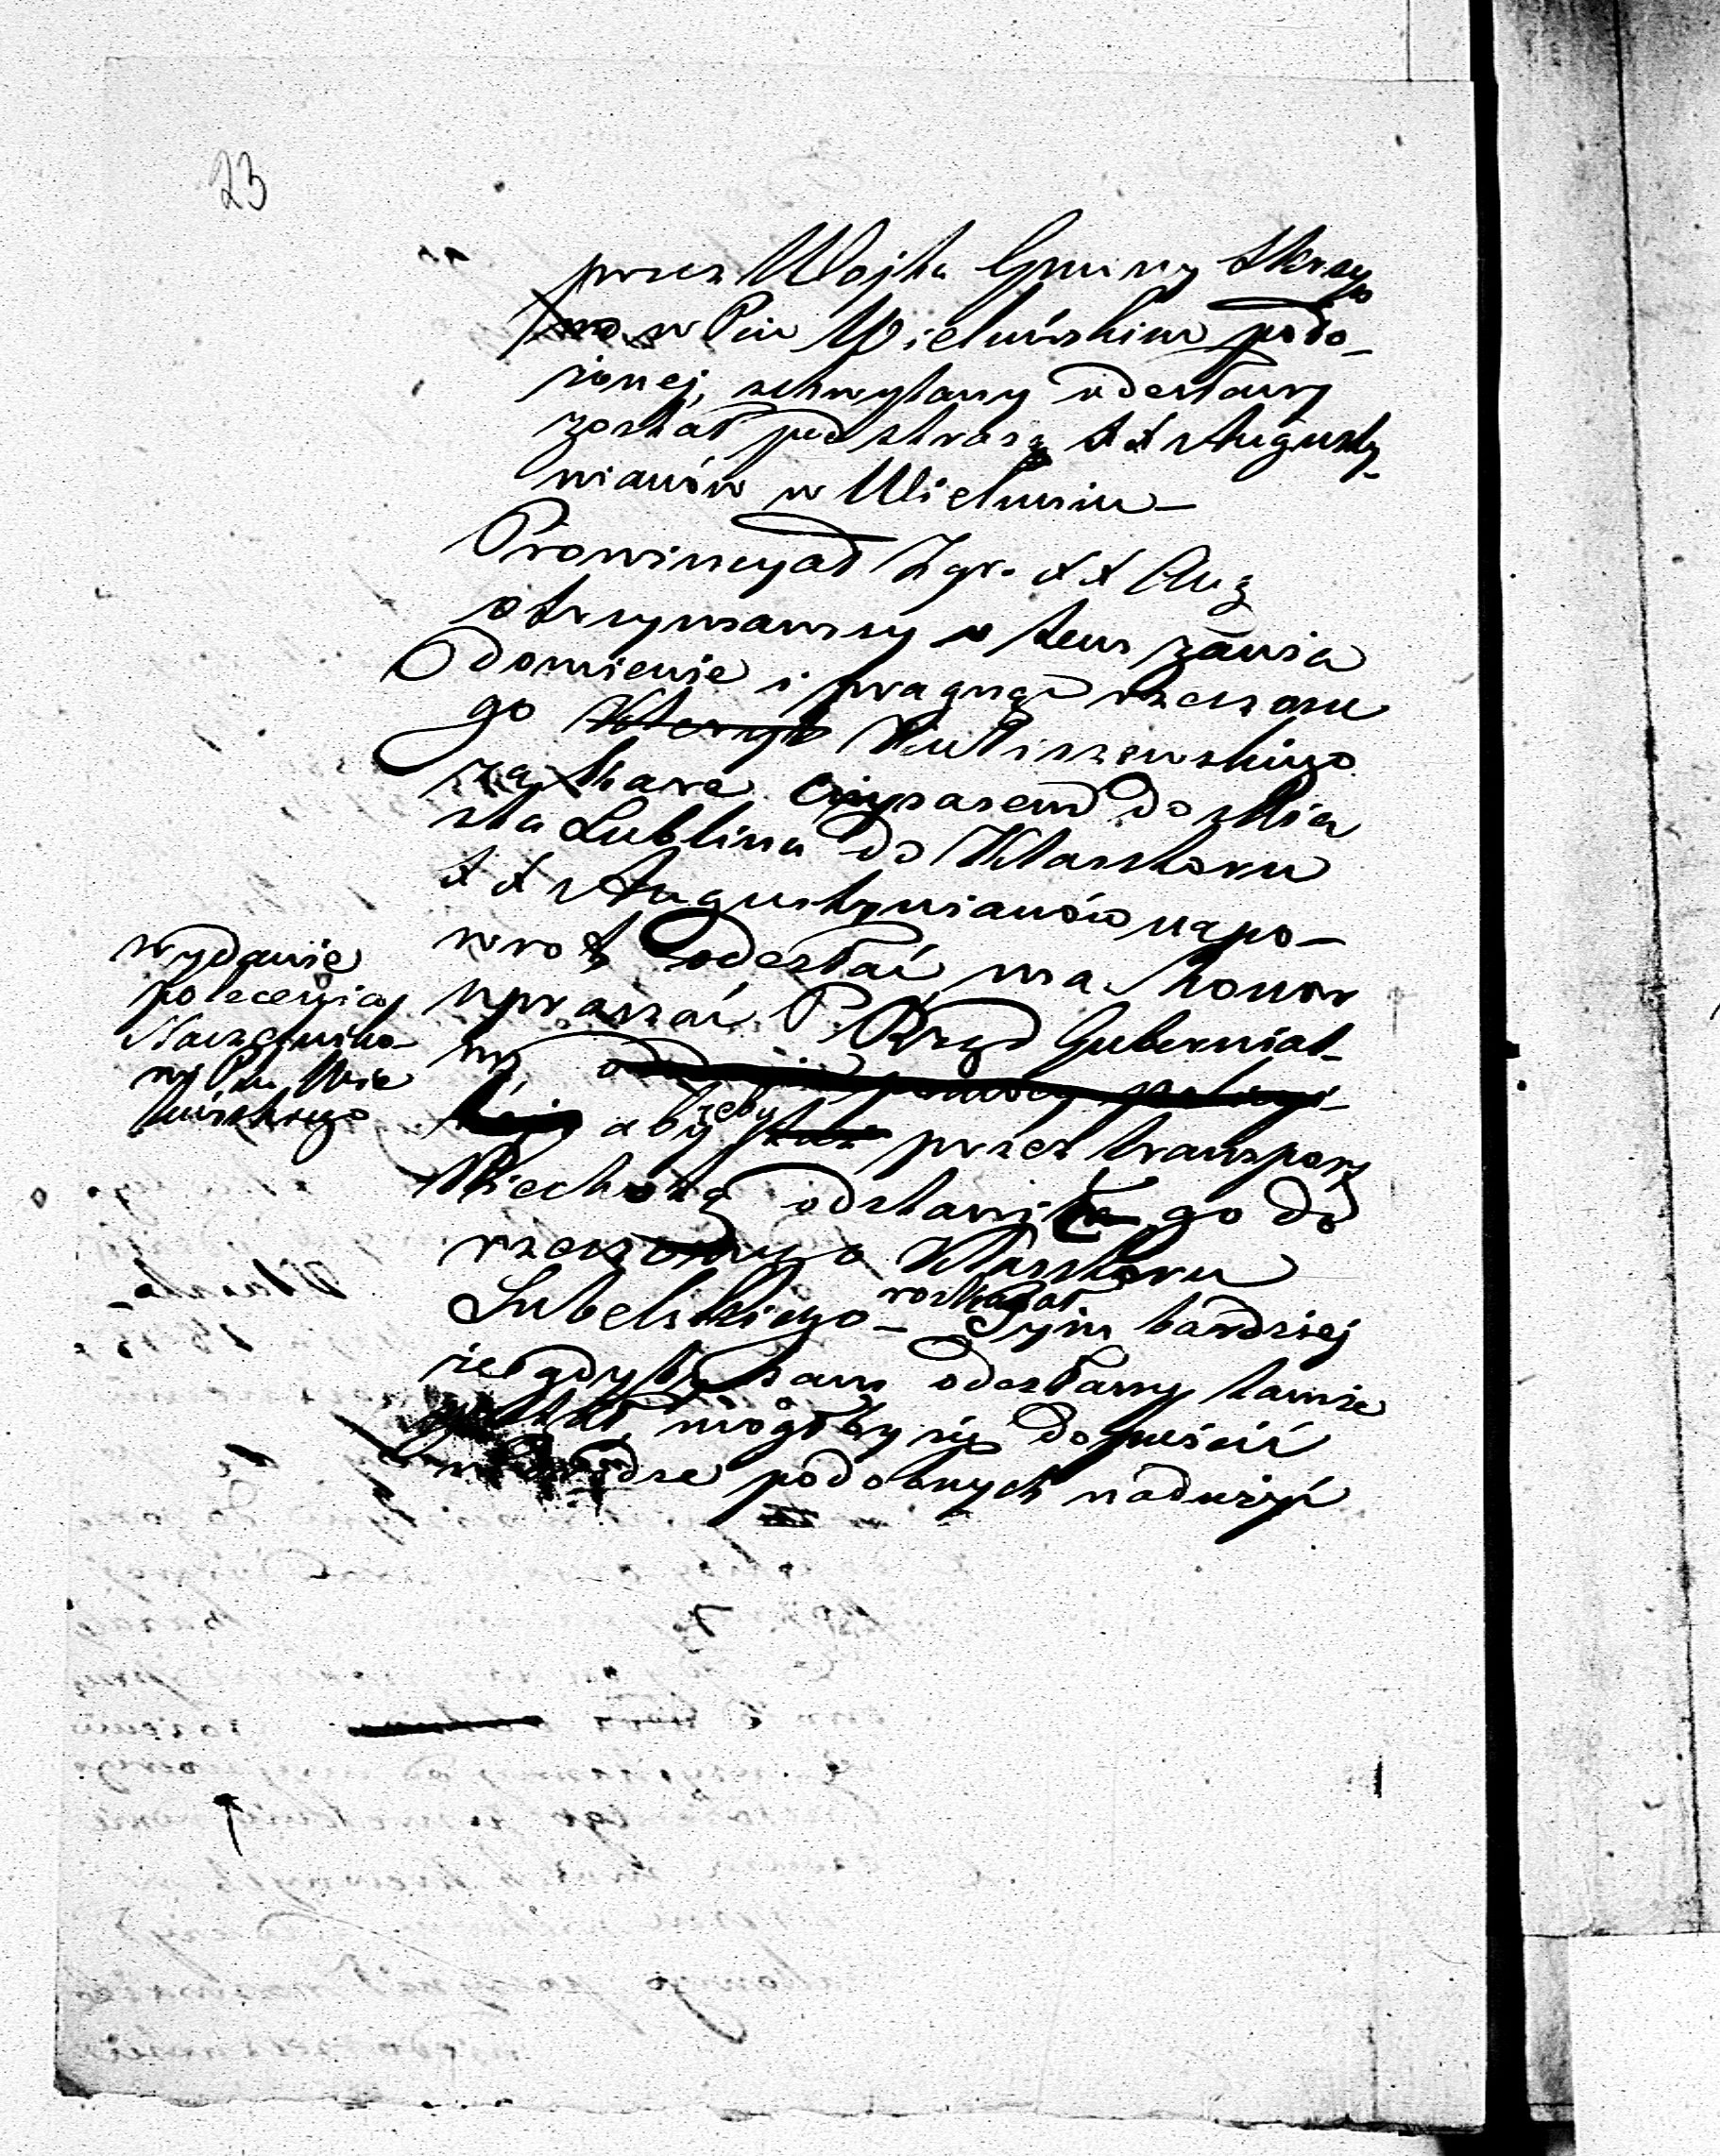 23
przez Wojta Gminy Skrzy
no w Pcie Wieluńskim poło-
żonej, schwytany odesłany
został pod strażą XX Augusty-
nianów w Wieluniu –
Prowincyał Zgr. XX Aug
otrzymawszy o tem zawia
domienie i pragnąc rzeczone
go Kuliszewskiego
za karę do Mia
sta Lublina do Klasztoru
XX Augustynianów napo-
wrot odesłać, ma honor
upraszać P. Rząd Gubernial-
ny,
aby żeby przez transport
Piechotą odstawić go do
rzeczonego Klasztoru
Lubelskiego – rozkazał Tym bardziej
że gdyby sam odesłany tamże
mógłby się dopuścić
w drodze podobnych nadużyć
wydanie
polecenia
Naczelniko-
wi Ptu Wie
luńskiego